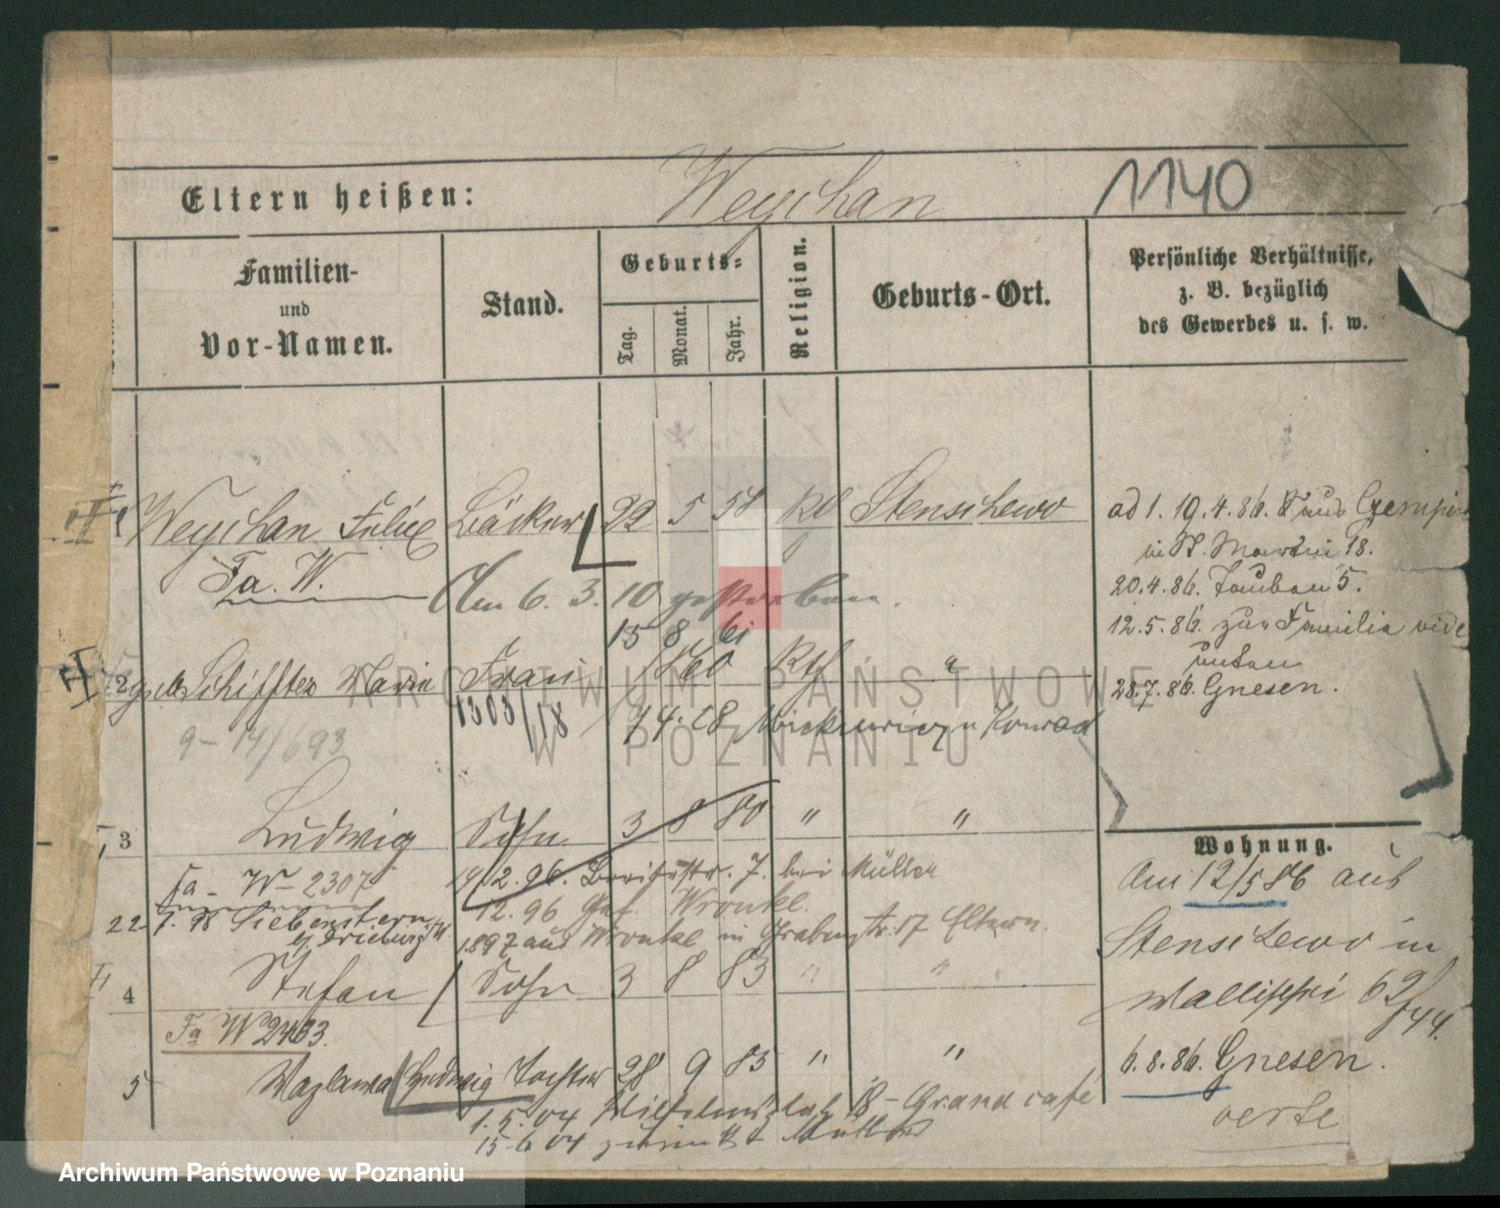 Eltern heißen: Weychan 1140
Familien-
und
Vor-Namen.
Stand.
Geburts-
Tag. Monat. Jahr.
Religion.
Geburts-Ort.
Persönliche Verhältnisse,
z. B. bezüglich
des Gewerbes u. s. w.
1 Weychan Felix Bäcker 22 5 58 Kth Stenschewo
Fa. W.
Am 6. 3. 10 gestorben.
15 8 61
2 geb. Schiffter Marie Frau 1860 Kth "
1303/18 14.18 Mickiewicz Konrad
9-14/693
3 Ludwig Sohn 3 8 80 " "
Fa - W - 2307 19/2.96. Breitestr. 7. bei Müller
12.96 Gef. Wronke.
22 7.98 Siebenstern
1897 aus Wronke in Grabenstr. 17 Eltern.
4 Stefan Sohn 3 8 83 " "
Fa W 2463.
5 Wazlawa Hedwig Tochter 28 9 85 " "
1.5.04 Wilhelmsplatz 18 - Grand café
15.6.04 zurück z Mutter
ad 1. 19.4.86. aus
in St. Martin 18.
20.4.86. Tauben 5.
12.5.86. zur Familie vide
unten
28.7.86. Gnesen.
Wohnung.
Am 12/5 86 aus
Stenschewo in
Wallischei 62/44.
6.8.86. Gnesen.
verte
ARCHIWUM PAŃSTWOWE
W POZNANIU
Archiwum Państwowe w Poznaniu